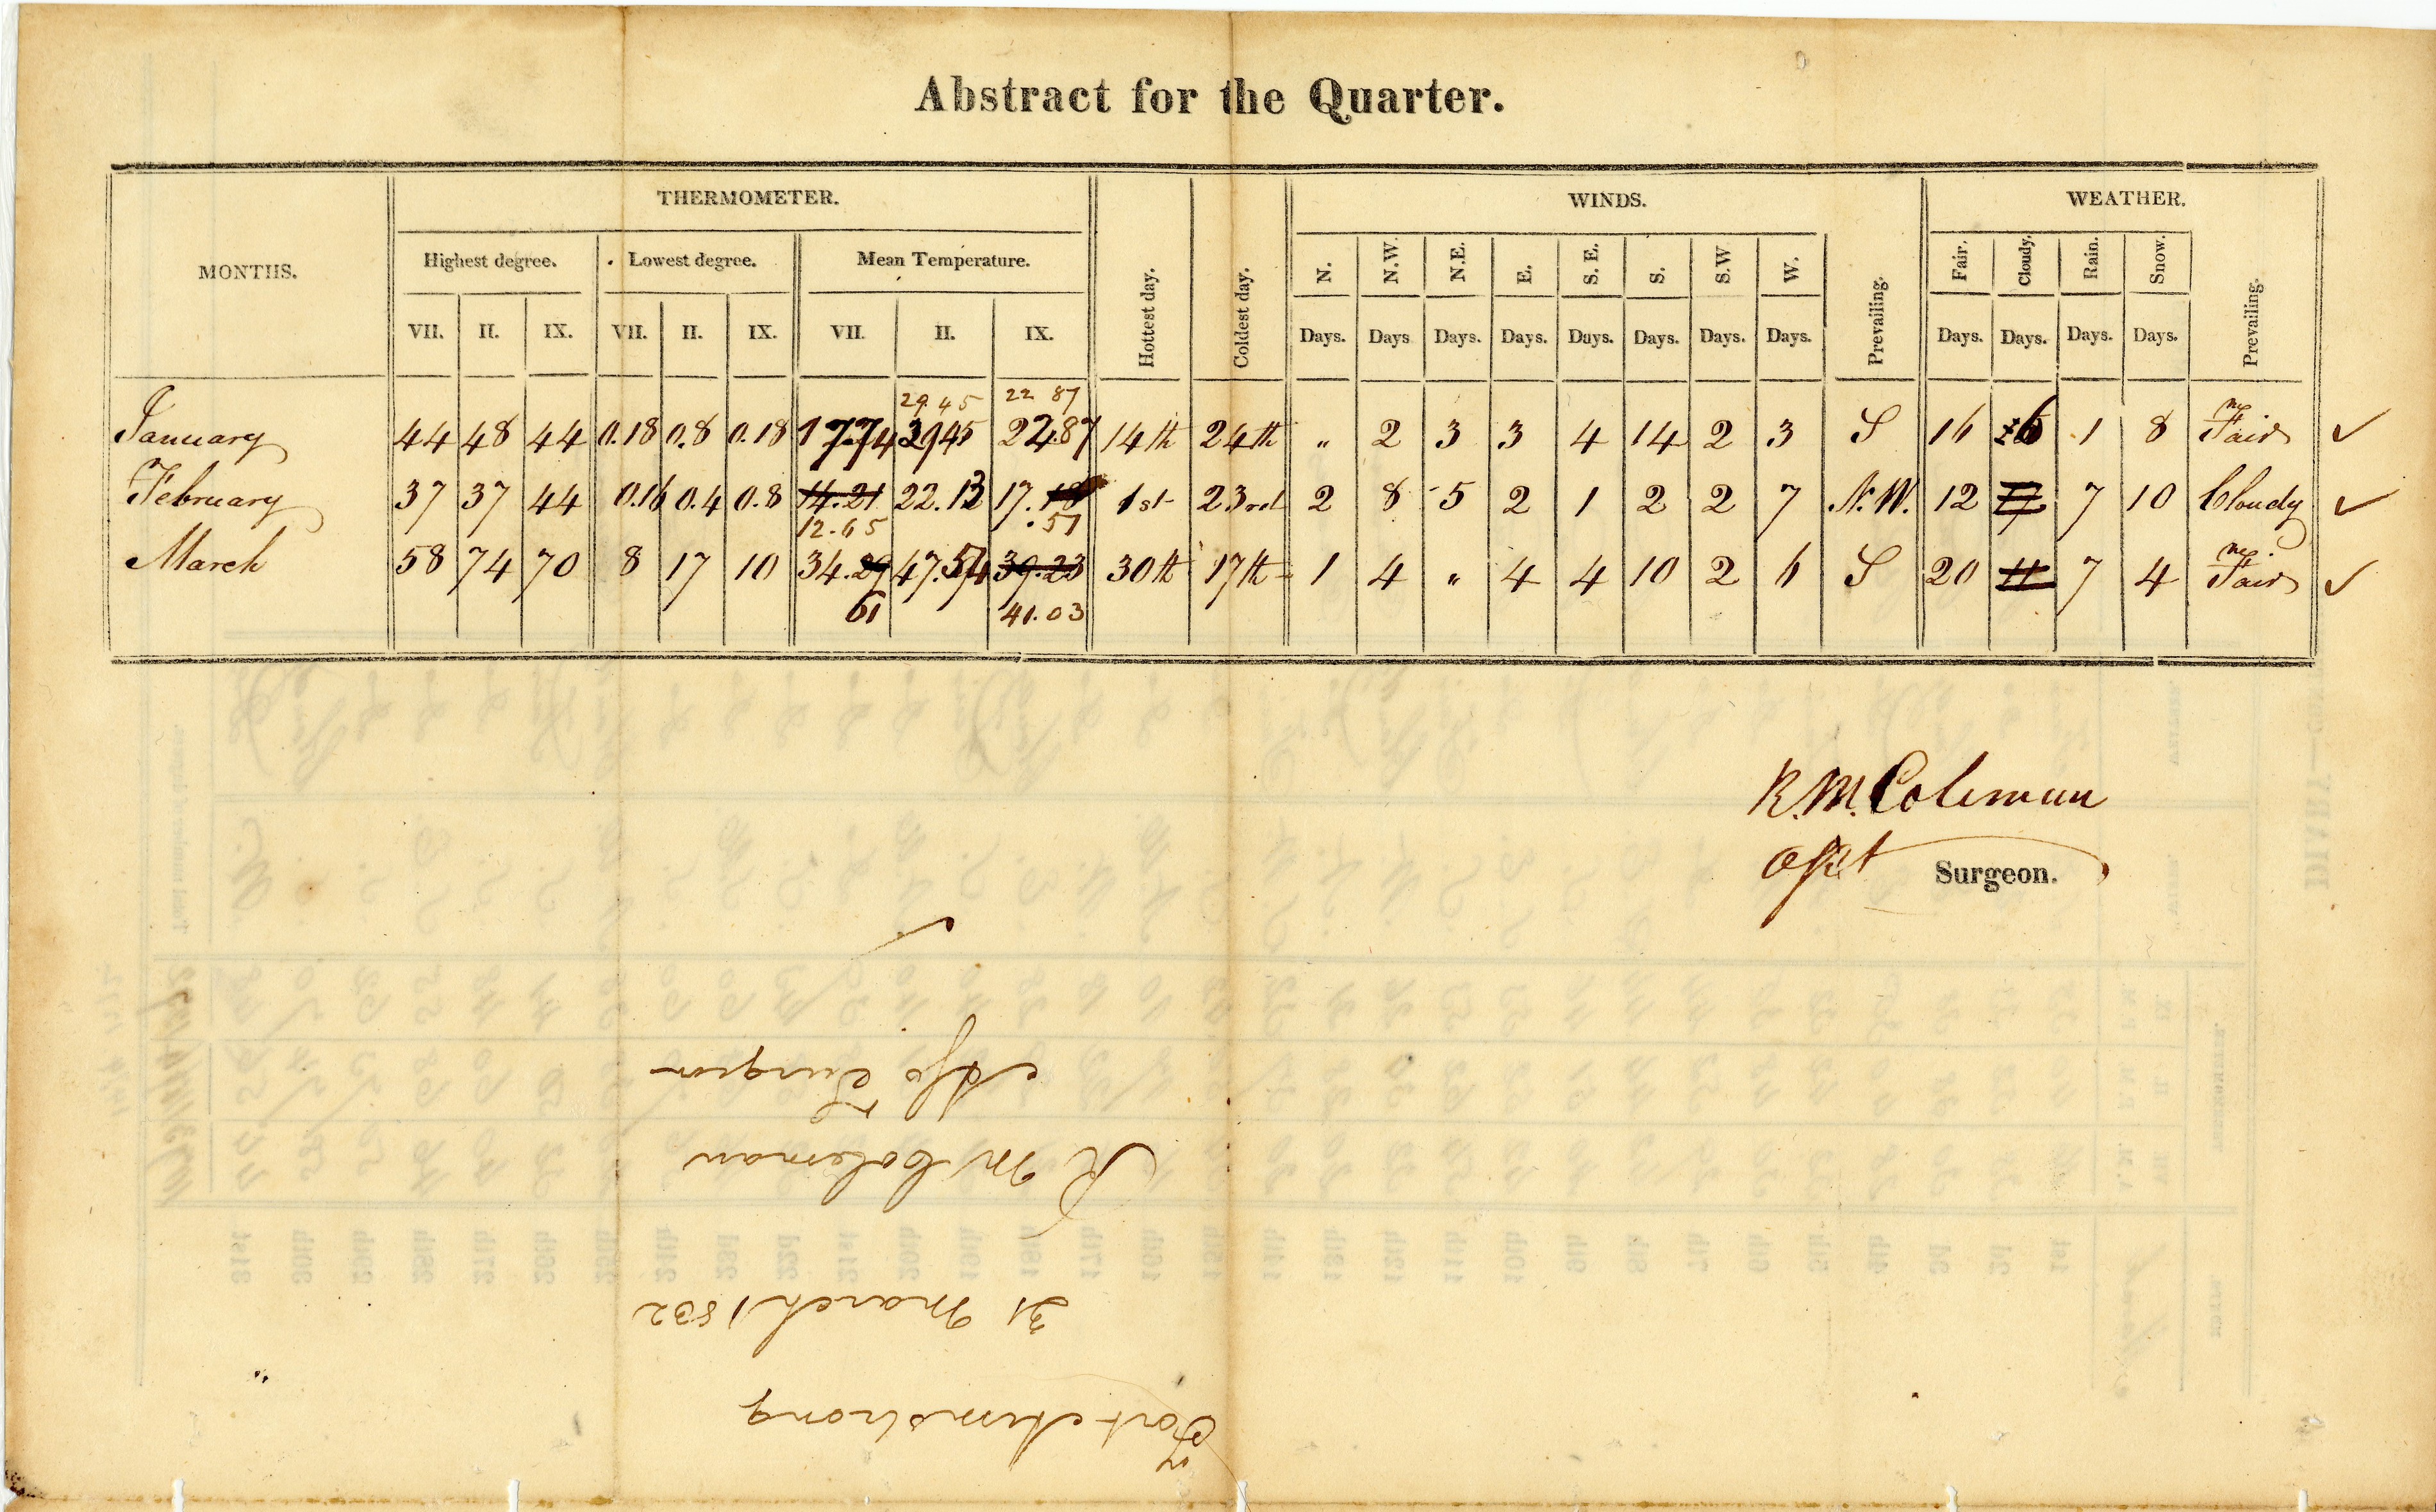 Abstract for the Quarter.
MONTHS. THERMOMETER. Hottest day. Coldest day. WINDS. WEATHER.
Highest degree. Lowest degree. Mean Temperature. N. N.W. N.E. E. S. E. S. S.W W. Prevailing. Fair. Cloudy. Rain. Snow. Prevailing.
VII. II. IX. VII. II. IX. VII. II. IX. Days. Days Days. Days. Days. Days. Days. Days. Days. Days. Days. Days.
29.45 22 87
January 44 48 44 0.18 0.8 0.18 17.74 2945 22.87 14th 24th " 2 3 3 4 14 2 3 S 16 6 1 8 Fair ✓
February 37 37 44 0.16 0.4 0.8 14.21 22.13 17.18 1st 23rd 2 8 5 2 1 2 2 7 N.W. 12 7 10 Cloudy ✓
12.65 .57
March 58 74 70 8 17 10 34.29 47.54 39.23 30th 17th 1 4 " 4 4 10 2 6 S 20 11 7 4 Fair ✓
61 41.03
R.M. Coleman
Asst Surgeon.
Fort Armstrong
31 March 1832
R M Coleman
Ass Surgeon